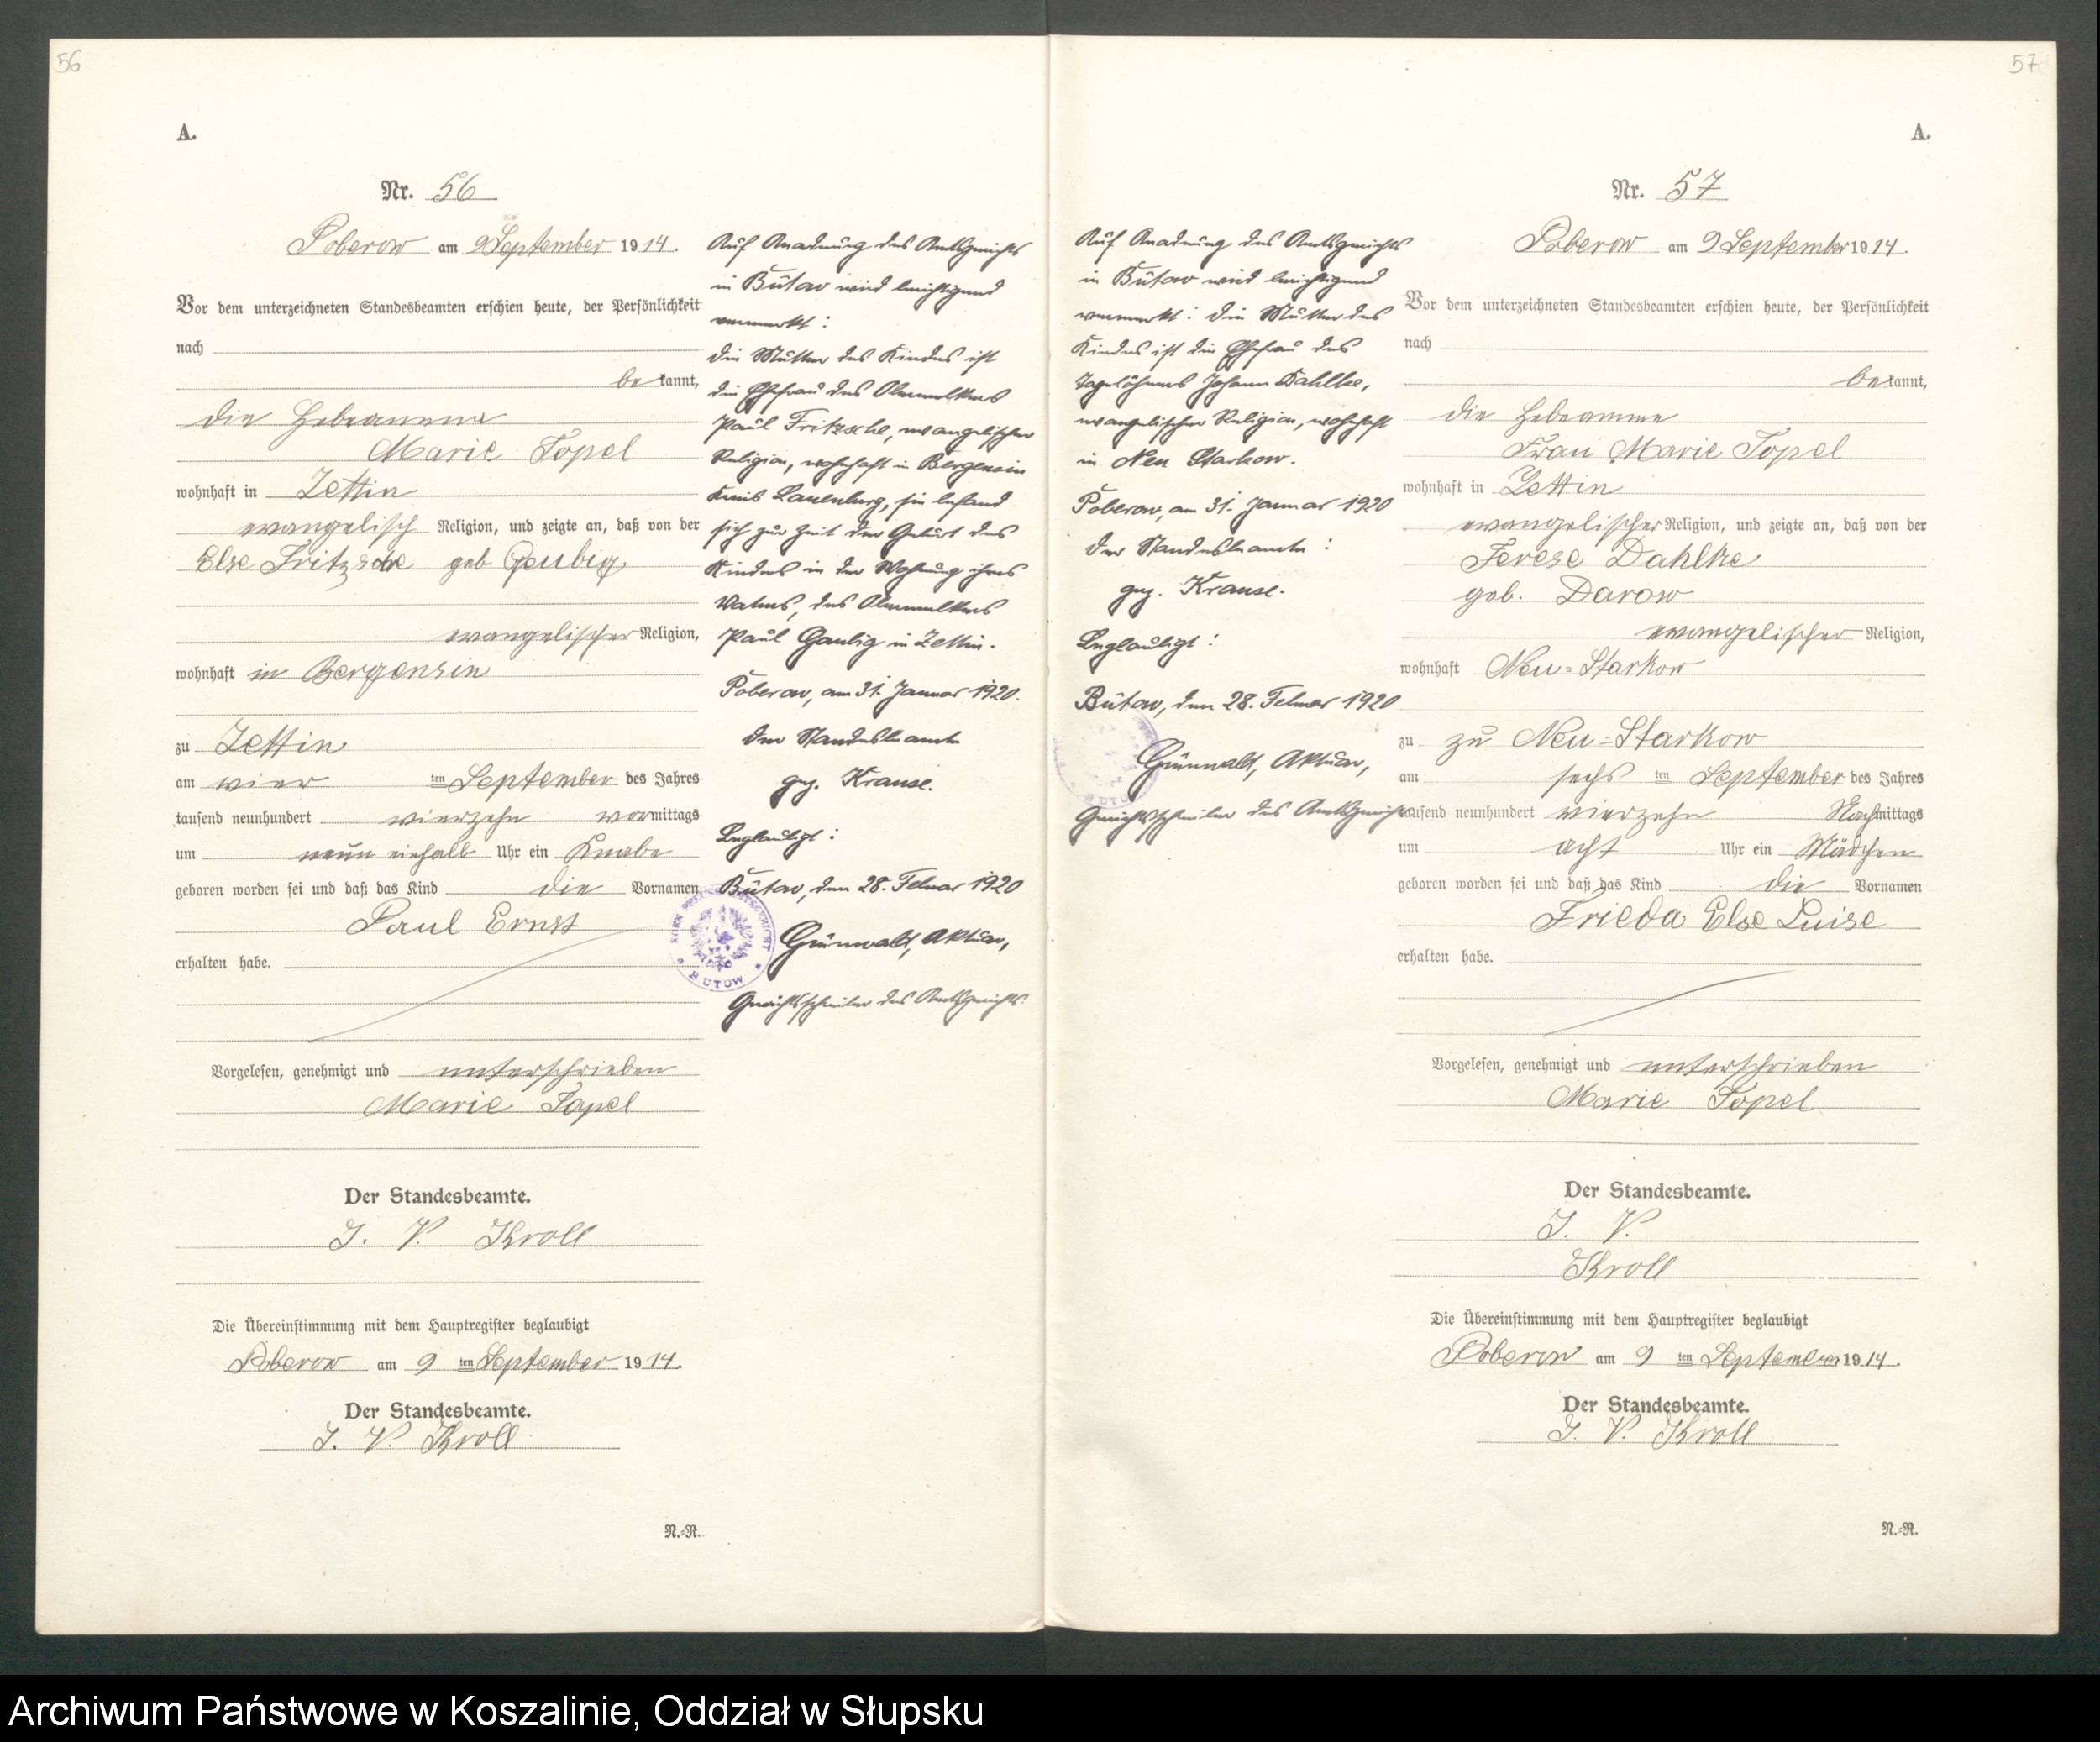 56
A.
Nr. 56
Poberow am 9 September 1914.
Vor dem unterzeichneten Standesbeamten erschien heute, der Persönlichkeit
nach
be kannt,
die Hebeamme
Marie Topel
wohnhaft in Zettin
evangelisch Religion, und zeigte an, daß von der
Else Fritzsche geb Geubig
evangelischer Religion,
wohnhaft in Bergensin
zu Zettin
am vier ten September des Jahres
tausend neunhundert vierzehn vormittags
um neun einhalb Uhr ein Knabe
geboren worden sei und daß das Kind die Vornamen
Paul Ernst
erhalten habe.
Vorgelesen, genehmigt und unterschrieben
Marie Topel
Der Standesbeamte.
J. V. Kroll
Die Übereinstimmung mit dem Hauptregister beglaubigt
Poberow am 9 ten September 1914.
Der Standesbeamte.
J. V. Kroll
N.=R.
Auf Anordnung des Amtsgerichts
in Bütow wird berichtigend
vermerkt:
die Mutter des Kindes ist
die Ehefrau des Obermelkers
Paul Fritzsche, evangelischer
Religion, wohnhaft in Bergensin
Kreis Lauenburg, sie befand
sich zur Zeit der Geburt des
Kindes in der Wohnung ihres
Vaters, des Obermelkers
Paul Gaubig in Zettin.
Poberow, am 31. Januar 1920.
der Standesbeamte
gez. Krause.
Beglaubigt:
Bütow, den 28. Februar 1920
Grünwald, Aktuar,
Gerichtsschreiber des Amtsgerichts.
BUTOW
57
A.
Nr. 57
Auf Anordnung des Amtsgerichts
in Bütow wird berichtigend
vermerkt: die Mutter des
Kindes ist die Ehefrau des
Tagelöhners Johann Dahlke,
evangelischer Religion, wohnhaft
in Neu Starkow.
Poberow, am 31. Januar 1920
der Standesbeamte:
gez. Krause.
Beglaubigt:
Bütow, den 28. Februar 1920
Grünwald, Aktuar,
Gerichtsschreiber des Amtsgerichts
Poberow am 9 September 1914.
Vor dem unterzeichneten Standesbeamten erschien heute, der Persönlichkeit
nach
be kannt,
die Hebeamme
Frau Marie Topel
wohnhaft in Zettin
evangelischer Religion, und zeigte an, daß von der
Terese Dahlke
geb. Darow
evangelischer Religion,
wohnhaft Neu=Starkow
zu zu Neu=Starkow
am sechs ten September des Jahres
tausend neunhundert vierzehn Nachmittags
um acht Uhr ein Mädchen
geboren worden sei und daß das Kind die Vornamen
Frieda Else Luise
erhalten habe.
Vorgelesen, genehmigt und unterschrieben
Marie Topel
Der Standesbeamte.
J. V.
Kroll
Die Übereinstimmung mit dem Hauptregister beglaubigt
Poberow am 9 ten September 1914.
Der Standesbeamte.
J. V. Kroll
N.=R.
Archiwum Państwowe w Koszalinie, Oddział w Słupsku